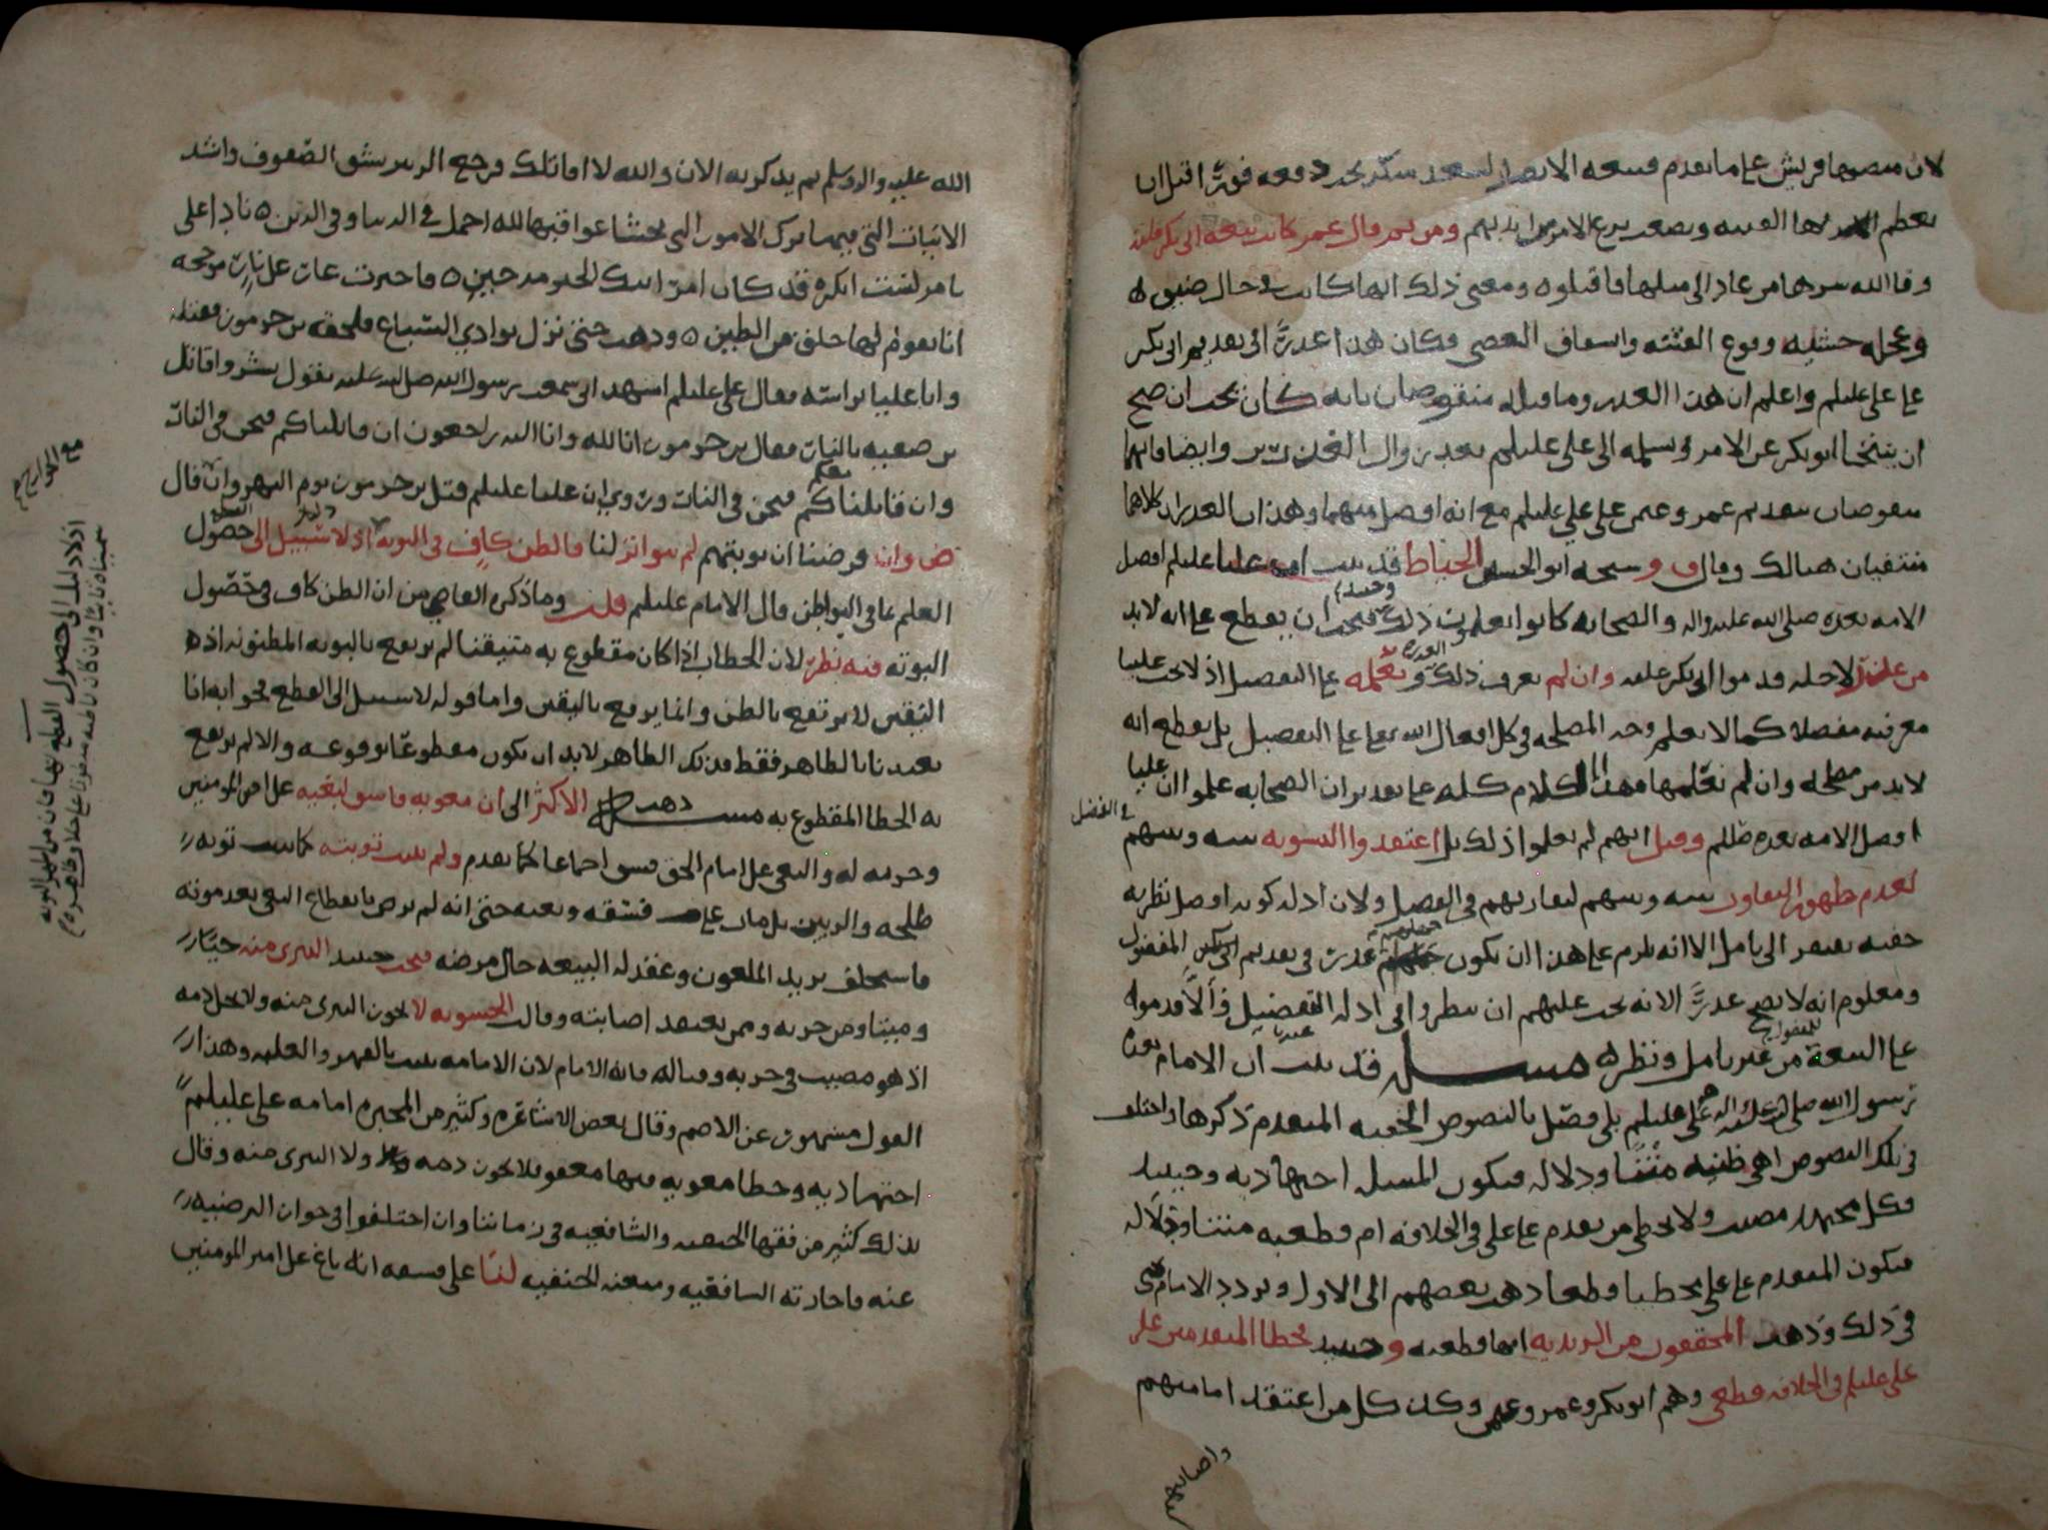 لان منصبها قريش على ما تقدم فبيعة الانصار لسعد منكر يجب دفعه فورا
ومن ثم قال عمر كانت بيعة ابي بكر فلتة
وقا الله شرها من عاد الى مثلها فاقتلوه ومعنى ذلك انها كانت في حال ضيق
وعجلة خشية وقوع الفتنة فكان هذا عذرا الى تقديم ابي بكر
على علي عليلم واعلم ان هذا العذر وما قبله منقوضان بانه كان يجب ان صح
ان يتنحا ابو بكر عن الامر ويسلمه الى علي عليلم بعد زوال العذرين وايضا فانهما
منقوضان بتقديم عمر وعثمن على علي عليلم مع انه افضل منهما وهذان العذران كلاهما
منتفيان هنالك وقال وشيخه ابو الحسين الخياط قد ثبت ان عليا عليلم افضل
الامة بعده صلى الله عليه واله والصحابة كانوا يعلمون ذلك فيجب ان يقطع على انه لا بد
من علة لاجلها قدموا ابى بكر عليه وان لم نعرف ذلك ونعلمه على التفصيل اذ لا يجب علينا
معرفته مفصلا كما لا نعلم وجه المصلحة في كل افعال الله تعالى على التفصيل بل نقطع انه
لا بد من مصلحة وان لم نعلمها وهذا الكلام كله على تقدير ان الصحابة علموا ان عليا
افضل الامة بعده صللم وقيل انهم لم يعلموا ذلك بل اعتقدوا التسوية بينه وبينهم
في الفضل
لعدم ظهور التفاوت بينه وبينهم لتقاربهم في الفضل ولان ادلة كونه افضل نظرية
خفية تفتقر الى تامل الا انه يلزم على هذا ان يكون جهلهم عذرا في تقديم ابي بكر المفضول
ومعلوم انه لا يصح عذرا لانه يجب عليهم ان ينظروا في ادلة التفضيل
على البيعة من غير تامل ونظر مسئلة قد ثبت ان الامام بعد
رسول الله صلى الله عليه واله علي عليلم بلى فصل بالنصوص الخفية المتقدم ذكرها واختلف
في تلك النصوص اهي ظنية متنا ودلالة فيكون المسئلة اجتهادية وحينئذ
فكل مجتهد مصيب ولا يخطى من تقدم على علي في الخلافة ام قطعية متنا ودلالة
فيكون المتقدم على علي مخطيا قطعا ذهب بعضهم الى الاول وتردد الامام
في ذلك وذهب المحققون من الزيدية انها قطعية وحينئذ يخطا المتقدمين على
علي عليلم في الخلافة قطعي وهم ابو بكر وعمر وعثمن وكذا كل من اعتقد امامتهم
الله عليه واله وسلم ثم يذكر به الان والله لا اقاتلك فرجع الزبير يشق الصفوف وانشد
الابيات التي فيها ترك الامور التي يخشا عواقبها لله اجمل في الدنيا وفي الدين نادا علي
بامر لست انكره قد كان عمر ابيك الخير مذ حين فاخترت عارا على نار موججة
انا يقوم لها خلق من الطين وذهب حتى نزل بوادي السباع فلحقه بن جرموز فقتله
واتا عليا براسه فقال علي عليلم اشهد اني سمعت رسول الله صلى الله عليه يقول بشروا قاتل
بن صفية بالنار فقال بن جرموز انا لله وانا اليه راجعون ان قاتلناكم فنحن في النار
وان قاتلنا معكم فنحن في النار وروي ان عليا عليلم قتل بن جرموز يوم النهروان قال
ض وان فرضنا ان توبتهم لم تتواتر لنا فالظن كاف في التوبة اذ لا سبيل الى حصول
العلم بما في البواطن قال الامام عليلم قلت وما ذكره القاضي من ان الظن كاف في حصول
التوبة فيه نظر لان الخطا اذا كان مقطوع به متيقنا لم يرتفع بالتوبة المظنونة اذ
اليقين لا يرتفع بالظن وانما يرفع باليقين واما قوله لا سبيل الى القطع فجوابه انا
تعبدنا بالظاهر فقط فذلك الظاهر لا بد ان يكون مقطوعا بوقوعه والا لم يرتفع
به الخطا المقطوع به مسئلة ذهب الاكثر الى ان معوية فاسق لبغيه على امير المومنين
وحربه له والبغي على امام الحق فسق اجماعا كما تقدم ولم يثبت توبته كما ثبت توبة
طلحة والزبير بل مات على فسقه وبغيه حتى انه لم يرض بانقطاع البغي بعد موته
فاستخلف يزيد الملعون وعقد له البيعة حال مرضه فيجب حينئذ التبري منه حيا
وميتا ومن حزبه وممن يعتقد اصابته وقالت الحشوية لا يجوز التبري منه ولا يحل ذمه
اذ هو مصيب في حربه وقتاله فانه الامام لان الامامة يثبت بالقهر والغلبة وهذا
القول مشهور عن الاصم وقال بعض الاشاعرة وكثير من المجبرة امامة علي عليلم
اجتهادية وخطا معوية فيها معفو فلا يجوز ذمه ولا التبري منه وقال
بذلك كثير من فقها الحنفية والشافعية في زماننا وان اختلفوا في جواز الترضية
عنه فاجازته الشافعية ومنعته الحنفية لنا على فسقه انه باغ على امير المومنين
مع الخوارج
اذ لا دليل الى حصول القطع بها